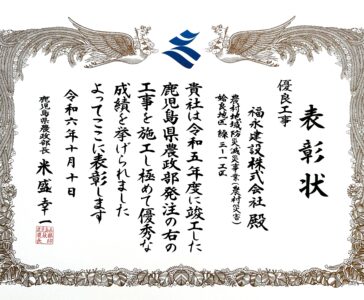 表彰状
優良工事
福永建設株式会社 殿
農村地域防災減災事業(農村災害)
姶良地区 線3-1工区
貴社は令和五年度に竣工した
鹿児島県農政部発注の右の
工事を施工し極めて優秀な
成績を挙げられました
よってここに表彰します
令和六年十月十日
鹿児島県農政部長 米盛幸一